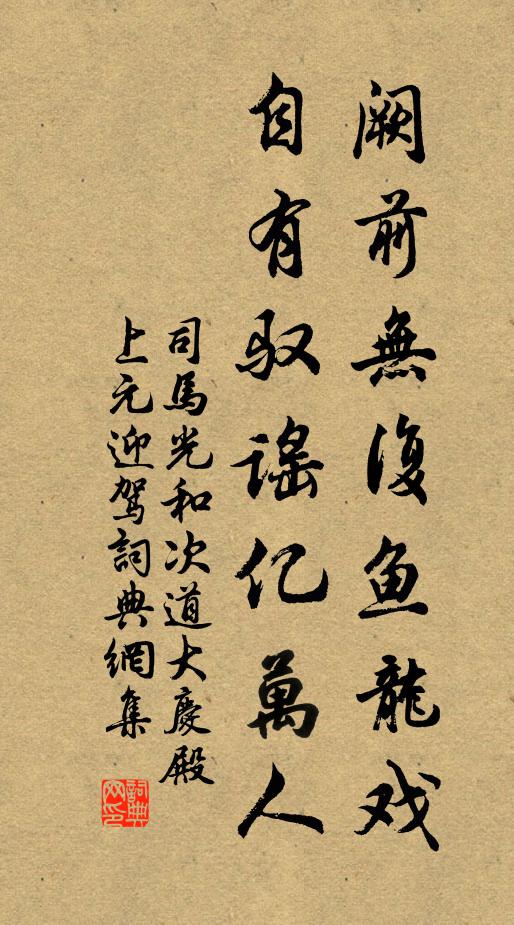 阙前無復鱼龍戏
自有驭謠亿萬人
司馬光和次道大慶殿
上元迎駕詞典網集
詞典网印